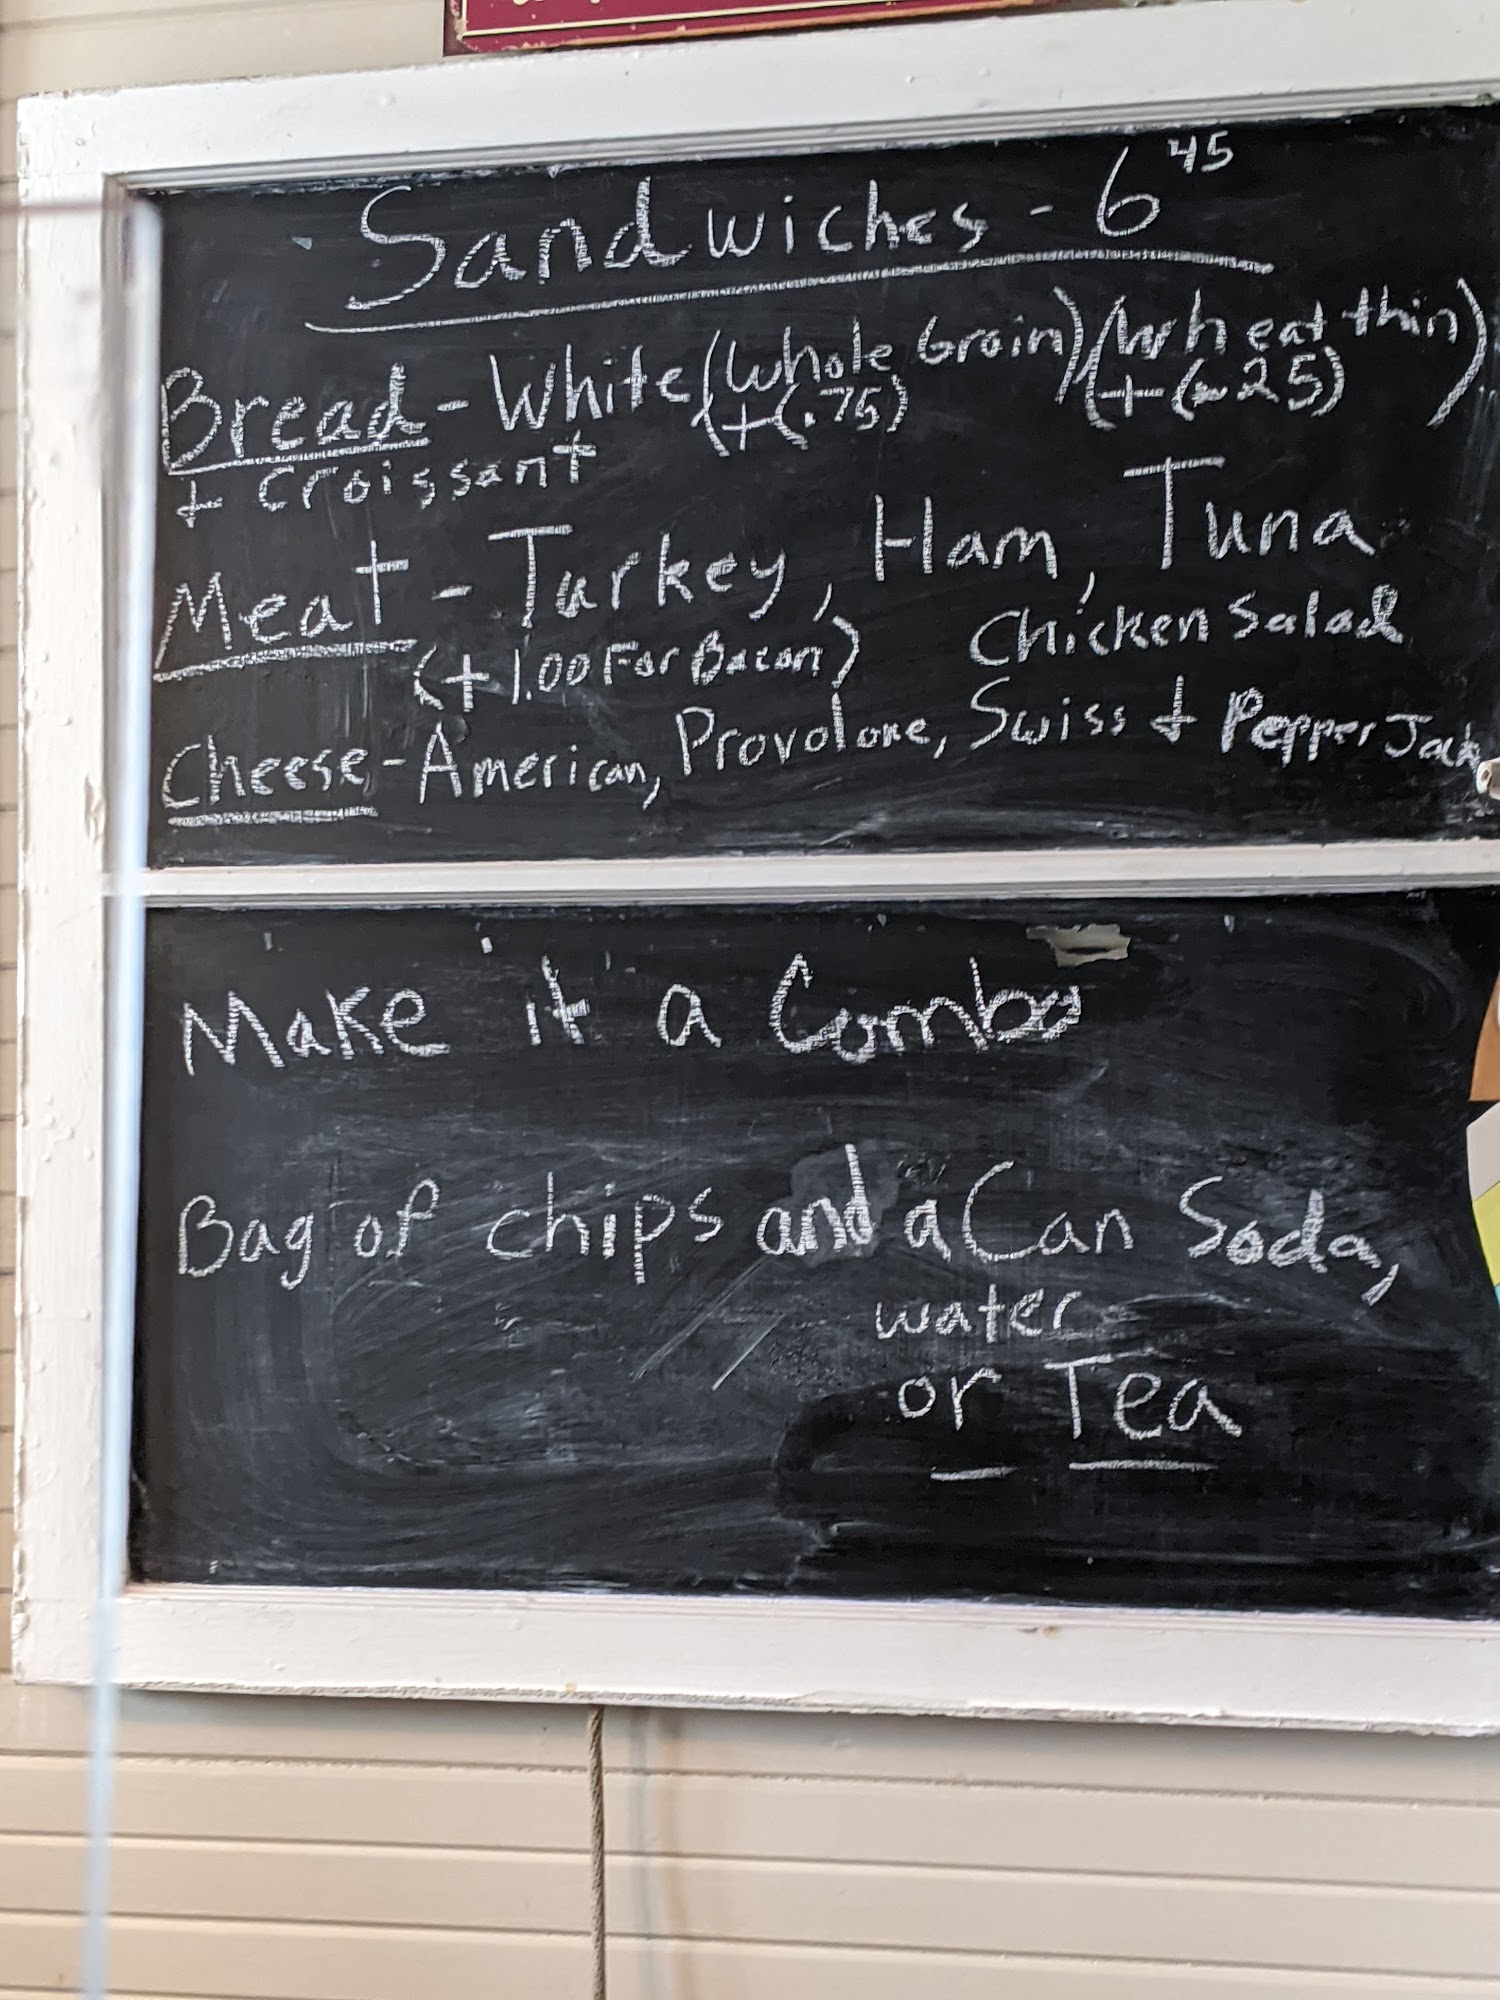 Sandwiches - 6 45
Bread - White (Whole Grain) (Wheat thin)
(+(.75) (+(.25)
+ Croissant
Meat - Turkey, Ham, Tuna
(+1.00 For Bacon) Chicken Salad
Cheese - American, Provolone, Swiss + Pepper Jack
Make it a Combo
Bag of chips and a Can Soda,
water
or Tea